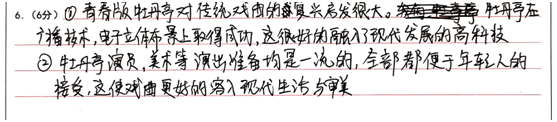 6. (6分) ① 青春版牡丹亭对传统戏曲的复兴启发很大。牡丹亭在
广播技术,电子立体布景上取得成功,这很好的融入了现代发展的高科技
② 牡丹亭演员,美术等演出准备均是一流的,全部都便于年轻人的
接受,这使戏曲更好的溶入现代生活与审美